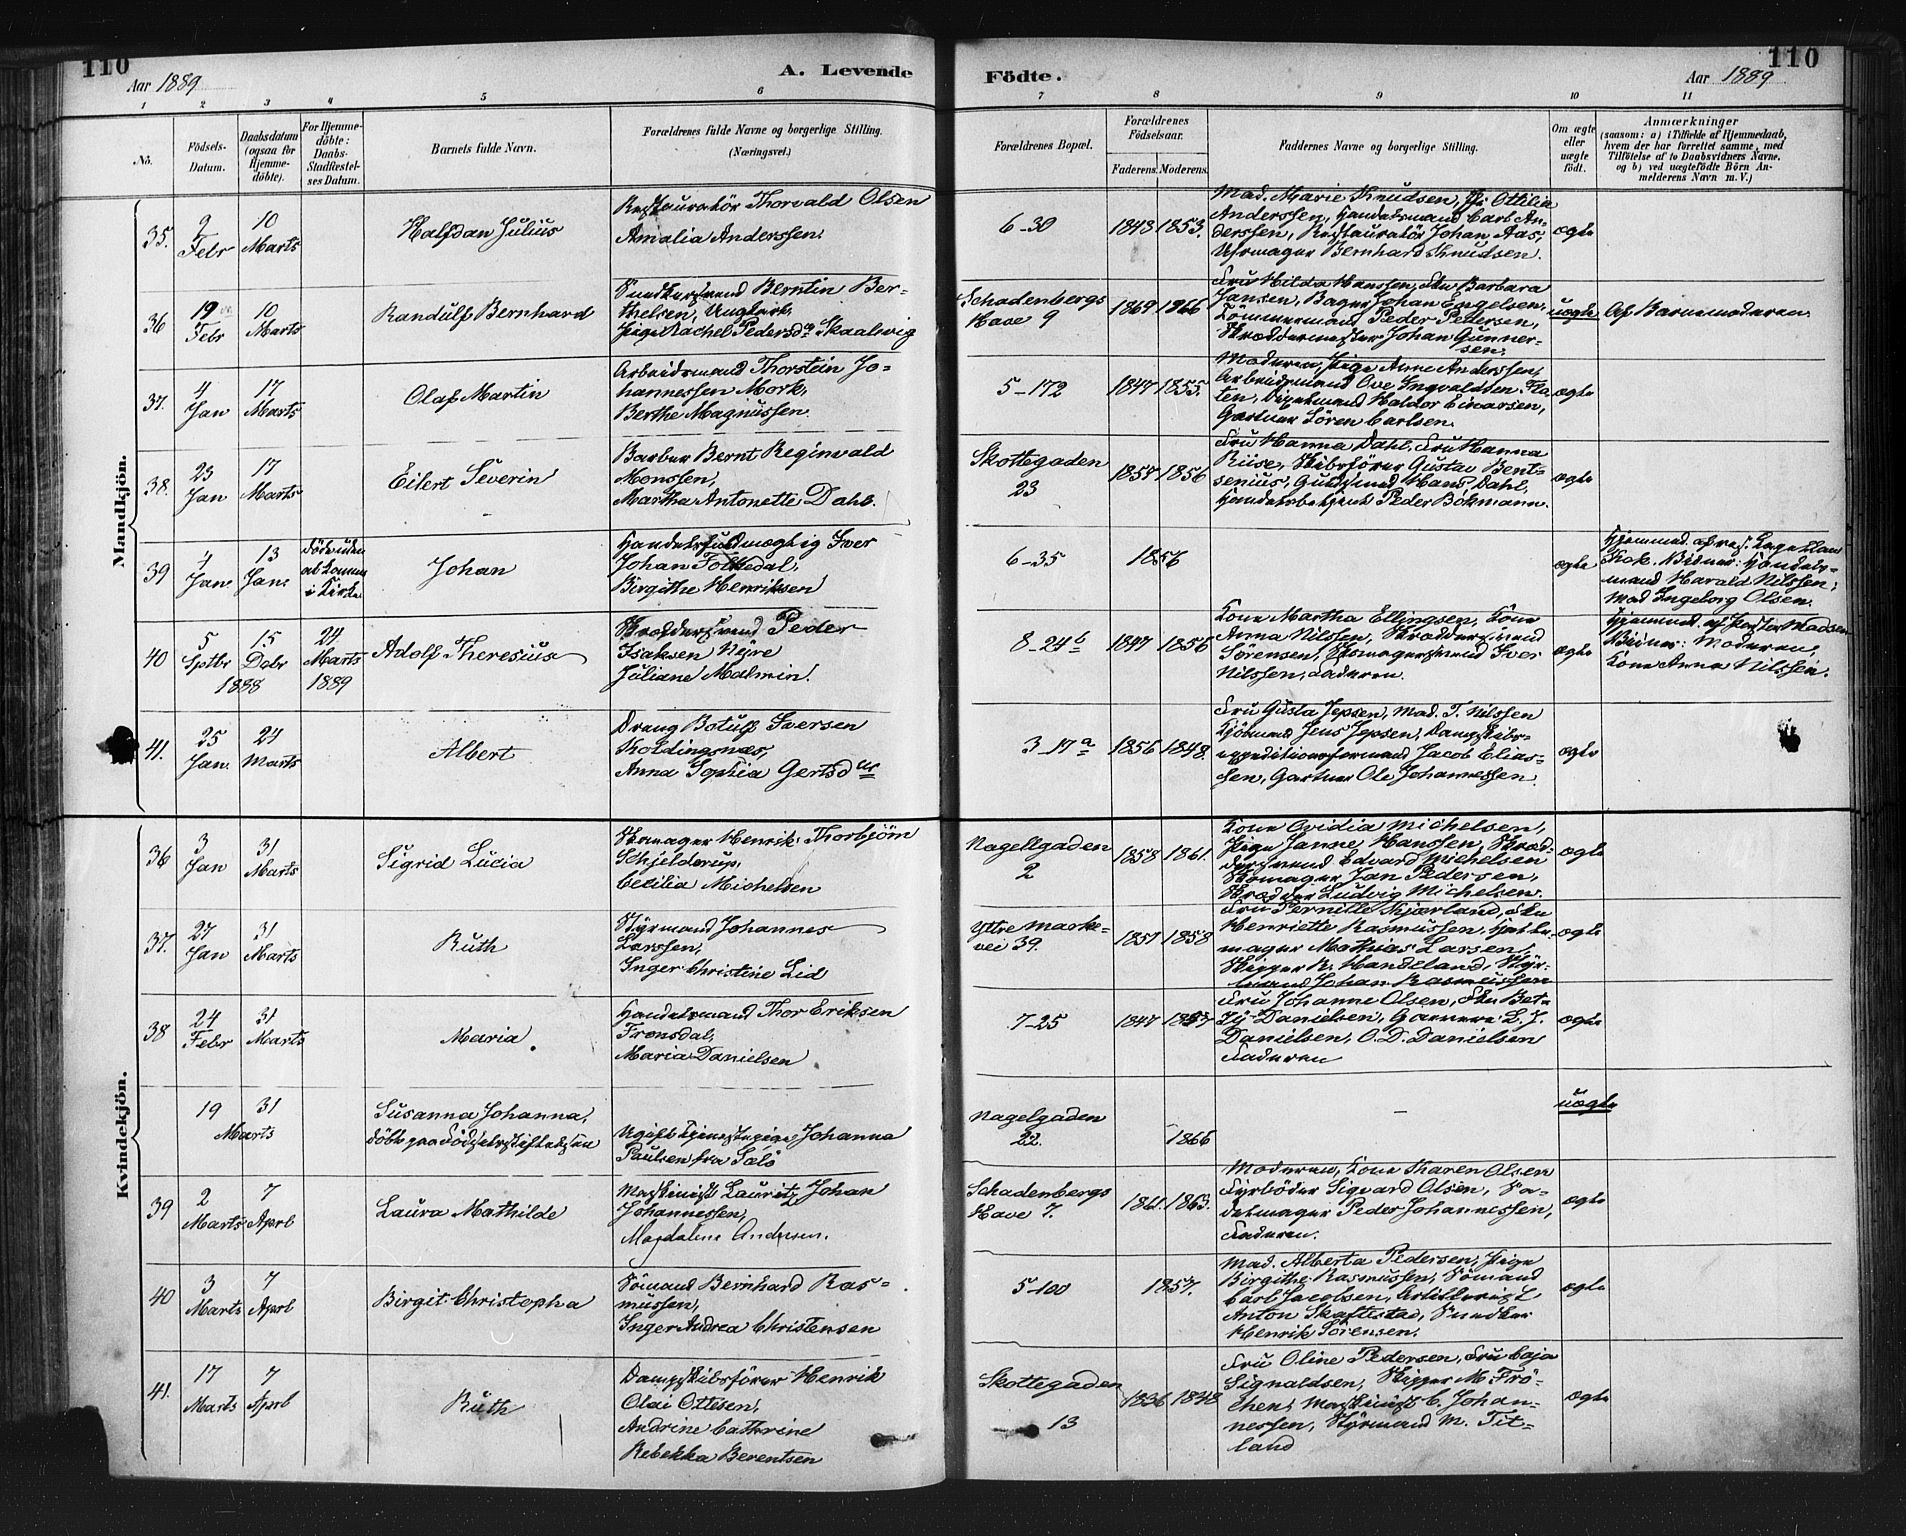 110
Aar 1889
A. Levende
Födte.
110
Aar 1889
1 2 3 4 5 6 7 8 9 10 11
No.
Födsels-
Datum.
Daabsdatum
(ogsaa for
Hjemme-
döbte).
For Hjemme-
döbte:
Daabs-
Stadfæstel-
ses Datum.
Barnets fulde Navn.
Forældrenes fulde Navne og borgerlige Stilling.
(Næringsvei.)
Forældrenes Bopæl.
Forældrenes
Födselsaar.
Faderens. Moderens.
Faddernes Navne og borgerlige Stilling.
Om ægte
eller
uægte
födt.
Anmærkninger
(saasom: a) i Tilfælde af Hjemmedaab,
hvem der har forrettet samme, med
Tilföielse af to Daabsvidners Navne,
og b) ved uægtefödte Börn An-
melderens Navn m. V.)
Mandkjön.
35.
9
Febr
10
Marts
Halfdan Julius
Restauratör Thorvald Olsen
Amalia Anderssen.
6-30
1843 1853.
Mad. Marie Knudsen, Fr. Ottilia
Anderssen, Handelsmand Carl An-
derssen, Restauratör Johan Aas,
Uhrmager Bernhard Knudsen.
ægte
36
19
Febr
10
Marts
Randulf Bernhard
Snedkersvend Berntin Ber-
thelsen, Ungkarl,
Pige Rachel Pedersdr Skaalevig
Schadenbergs
Have 9
1869 1866
Fru Hilda Hanssen, Frk Barbara
Jansen, Bager Johan Engelsen,
Tömmermand Peder Pettersen,
Skræddermester Johan Gunner-
sen.
uægte
Af Barnemoderen.
37.
4
Jan
17
Marts
Olaf Martin
Arbeidsmand Thorstein Jo-
hannessen Mork,
Berthe Magnussen.
5-172
1847 1855.
Moderen, Pige Anne Anderssen,
Arbeidsmand Ove Ingvaldsen Fle-
ten, Haldor Einarsen,
Gartner Sören Carlsen.
ægte
38.
23
Jan
17
Marts
Eilert Severin
Barber Bernt Reginvald
Monssen,
Martha Antonette Dahl.
Skottegaden
23
1854 1856
Fru Hanna Dahl, Fru Hanna
Riise, Skibsförer Gustav Bent-
senius, Guldsmed Hans Dahl,
Handelsbetjent Peder Bökmann.
ægte
39
4
Jan
13
Jan
Död uden
at komme
i Kirke
Johan
Handelsfuldmægtig Iver
Johan Folkedal,
Birgithe Henriksen
6-35
1856
ægte
Hjemmed. af res. Kap. Klaus
Vidner: Handels-
mand Harald Nilssen,
Mad Ingeborg Olsen.
40
5
Sptbr
1888
15
Debr
24
Marts
1889
Adolf Theresius
Skræddersvend Peder
Isaksen Nyre
Juliane Malmin.
8-24b
1847 1856
Kone Martha Ellingsen, Kone
Anna Nilssen, Skræddersvend
Sörensen, Skomagersvend Iver
Nilssen, Faderen.
ægte
Hjemmed. af Pastor Madsen
Vidner: Moderen,
Kone Anna Nilssen.
41.
25
Jan.
24
Marts
Albert
Dreng Botulf Iversen
Koldingsnæs,
Anna Sophia Gertsdtr
3-17a
1856 1848.
Fru Gusta Jepsen, Mad. T. Nilssen
Kjöbmand Jens Jepsen, Dampskibs-
expeditionsformand Jacob Elias-
sen, Gartner Ole Johannessen.
ægte
Kvindekjön.
36
3
Jan
31
Marts
Sigrid Lucia
Skomager Henrik Thorbjörn
Schjelderup,
Cecilia Michelsen
Nagelgaden
2
1858 1861.
Kone Ovidia Michelsen,
Pige Janne Hanssen, Skræd-
dersvend Edvard Michelsen
Skomager Jan Pedersen,
Skrædder Ludvig Michelsen.
ægte
37.
27
Jan
31
Marts
Ruth
Styrmand Johannes
Larssen,
Inger Christine Lid
Ytre Marke-
vei 39.
1857 1858
Fru Pernille Kjærland, Frk
Henriette Rasmussen, Hatte-
mager Mathias Larsen,
Skipper R. Handeland, Styr-
mand Johan Rasmussen
ægte
38
24
Febr
31
Marts
Maria
Handelsmand Thor Eriksen
Fronsdal,
Maria Danielsen
7-25
1847 1857
Fru Johanne Olsen, Frk Bet-
zy Danielsen, Garvere L. J.
Danielsen, O. D. Danielsen
Faderen
ægte
19 31
Marts
Susanna Johanna,
döbt paa Födselsstiftelsen
Ugift Tjenestepige Johanna
Paulsen fra Selö
Nagelgaden
22.
1866
-
uægte
39
2
Marts
7
Aprl
Laura Mathilde
Maskinist Lauritz Johan
Johannessen,
Magdalene Andersen.
Schadenbergs
Have 7.
1861. 1863.
Moderen, Kone Karen Olsen
Fyrböder Sigvard Olsen, Sa-
delmager Peder Johannessen,
Faderen.
ægte
40
3
Marts
7
Aprl
Birgit Christopha
Sömand Bernhard Ras-
mussen,
Inger Andrea Christensen
5-100
1857.
Mad. Alberta Pedersen, Pige
Birgithe Rasmussen, Sömand
Carl Jacobsen, Artillerist
Anton Skaftestad, Snedker
Henrik Sörensen.
ægte
41.
17
Marts
7
Aprl
Ruth
Dampskibsförer Henrik
Olai Ottesen,
Andrine Cathrine
Rebekka Berentsen
Skottegaden
13
1836 1848
Fru Oline Pedersen, Fru Caja
Signaldsen, Skipper M. Frö-
chen, Maskinist C. Johan-
nessen, Styrmand M. Tit-
land
ægte